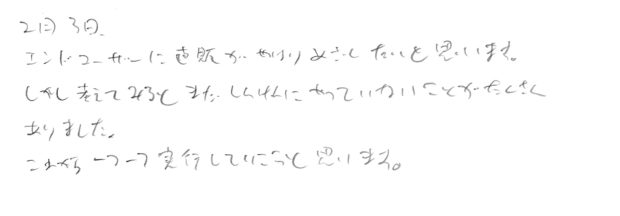 2月3日
エンドユーザーに直販がやはりめざしたいと思います。
しかし考えてみるとまだしんけんにやっていないことがたくさん
ありました。
これから一つ一つ実行していこうと思います。